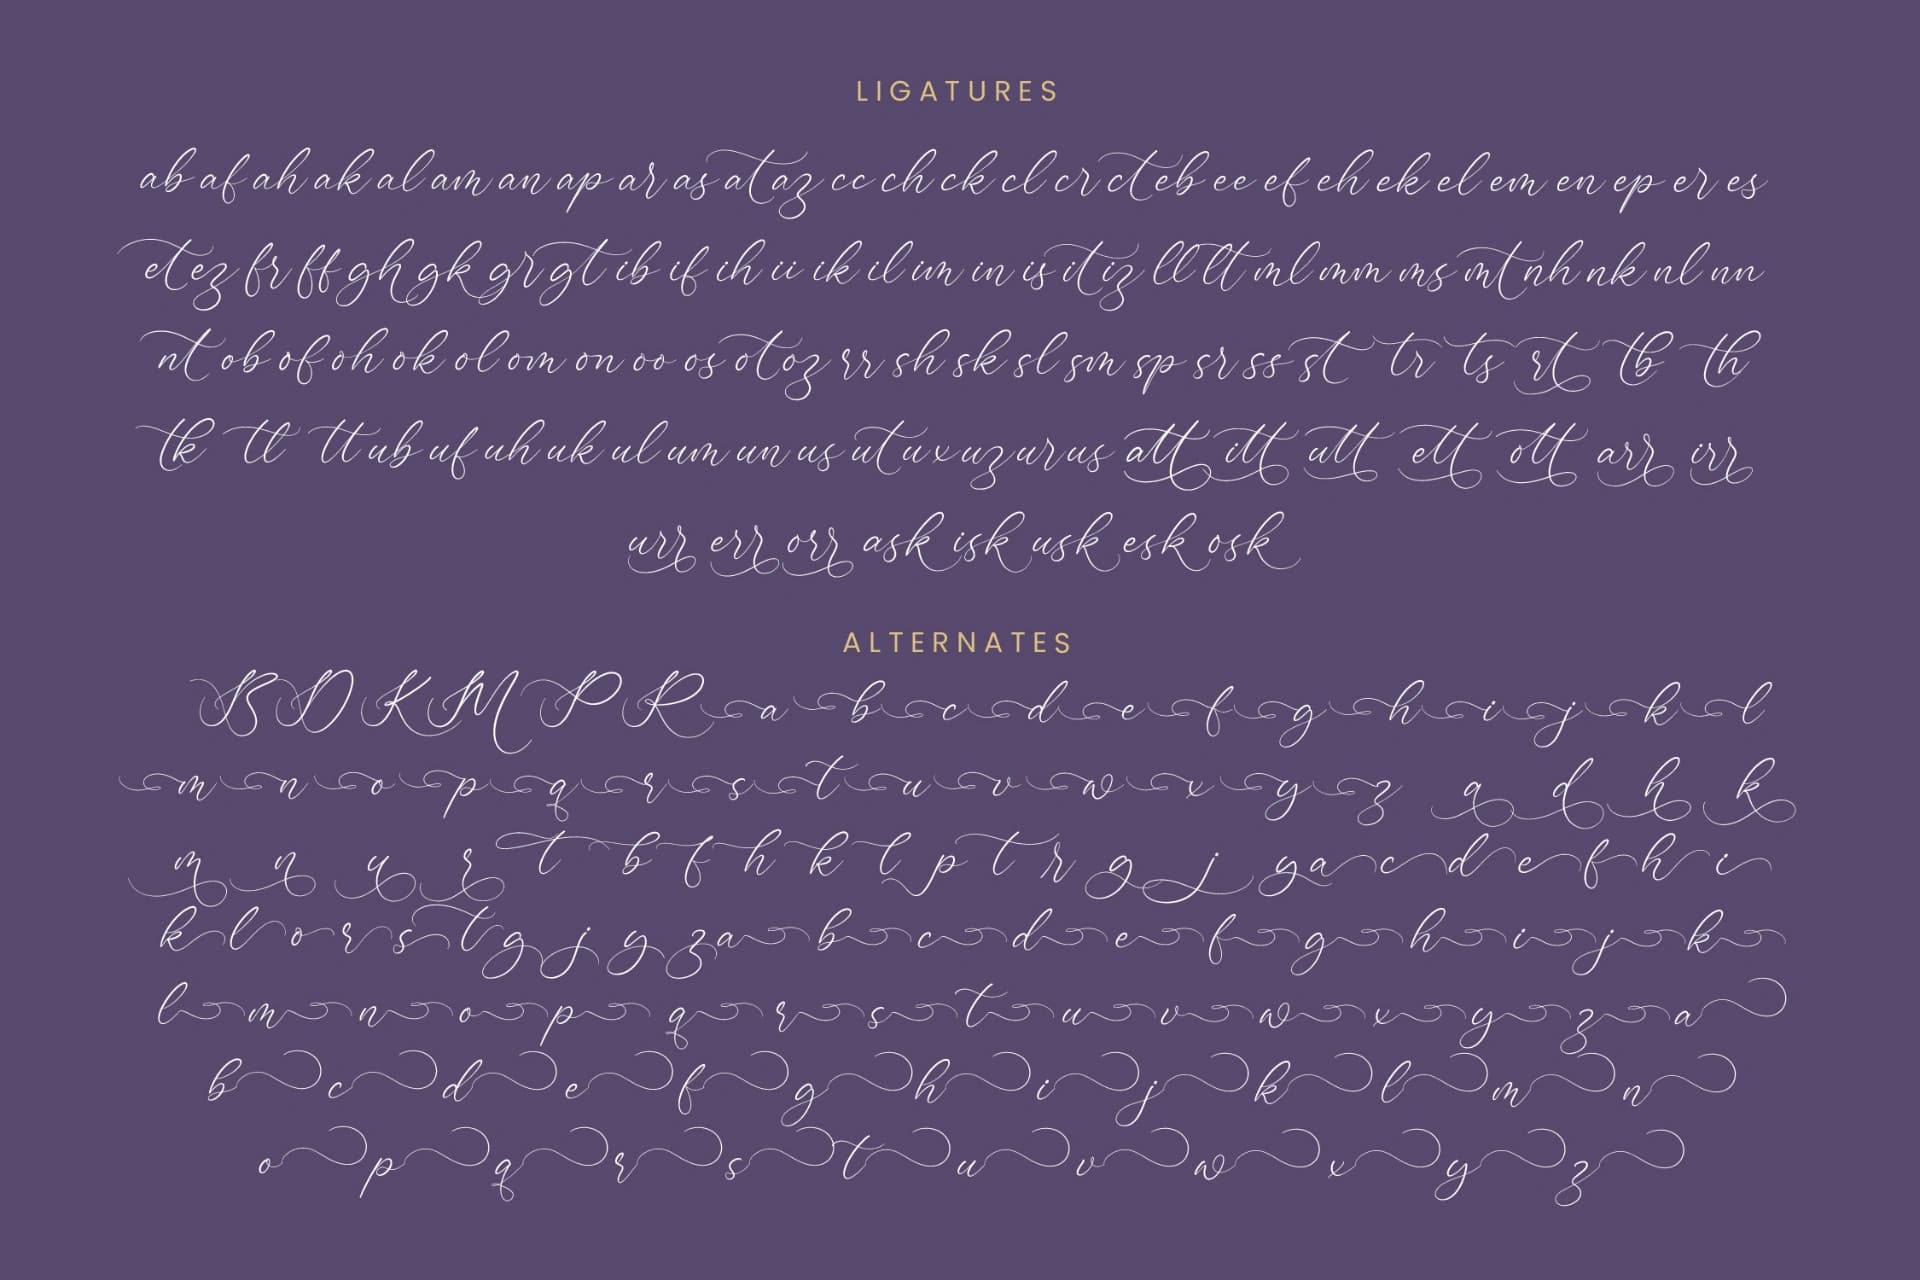 LIGATURES
ab af ah ak al am an ap ar as at az cc ch ck cl cr ct eb ee ef eh ek el em en ep er es
et ez fr ff gh gk gr gt ib if ih ii ik il im in is it iz ll lt ml mm ms mt nh nk nl nn
nt ob of oh ok ol om on oo os ot oz rr sh sk sl sm sp sr ss st tr ts rt tb th
tk tl tt ub uf uh uk ul um un us ut ux uz ur us att itt utt ett ott arr irr
urr err orr ask isk usk esk osk
ALTERNATES
B D K M P R a b c d e f g h i j k l
m n o p q r s t u v w x y z a d h k
m n u r t b f h k l p t r g j y a c d e f h i
k l o r s t g j y z a b c d e f g h i j k
l m n o p q r s t u v w x y z a
b c d e f g h i j k l m n
o p q r s t u v w x y z